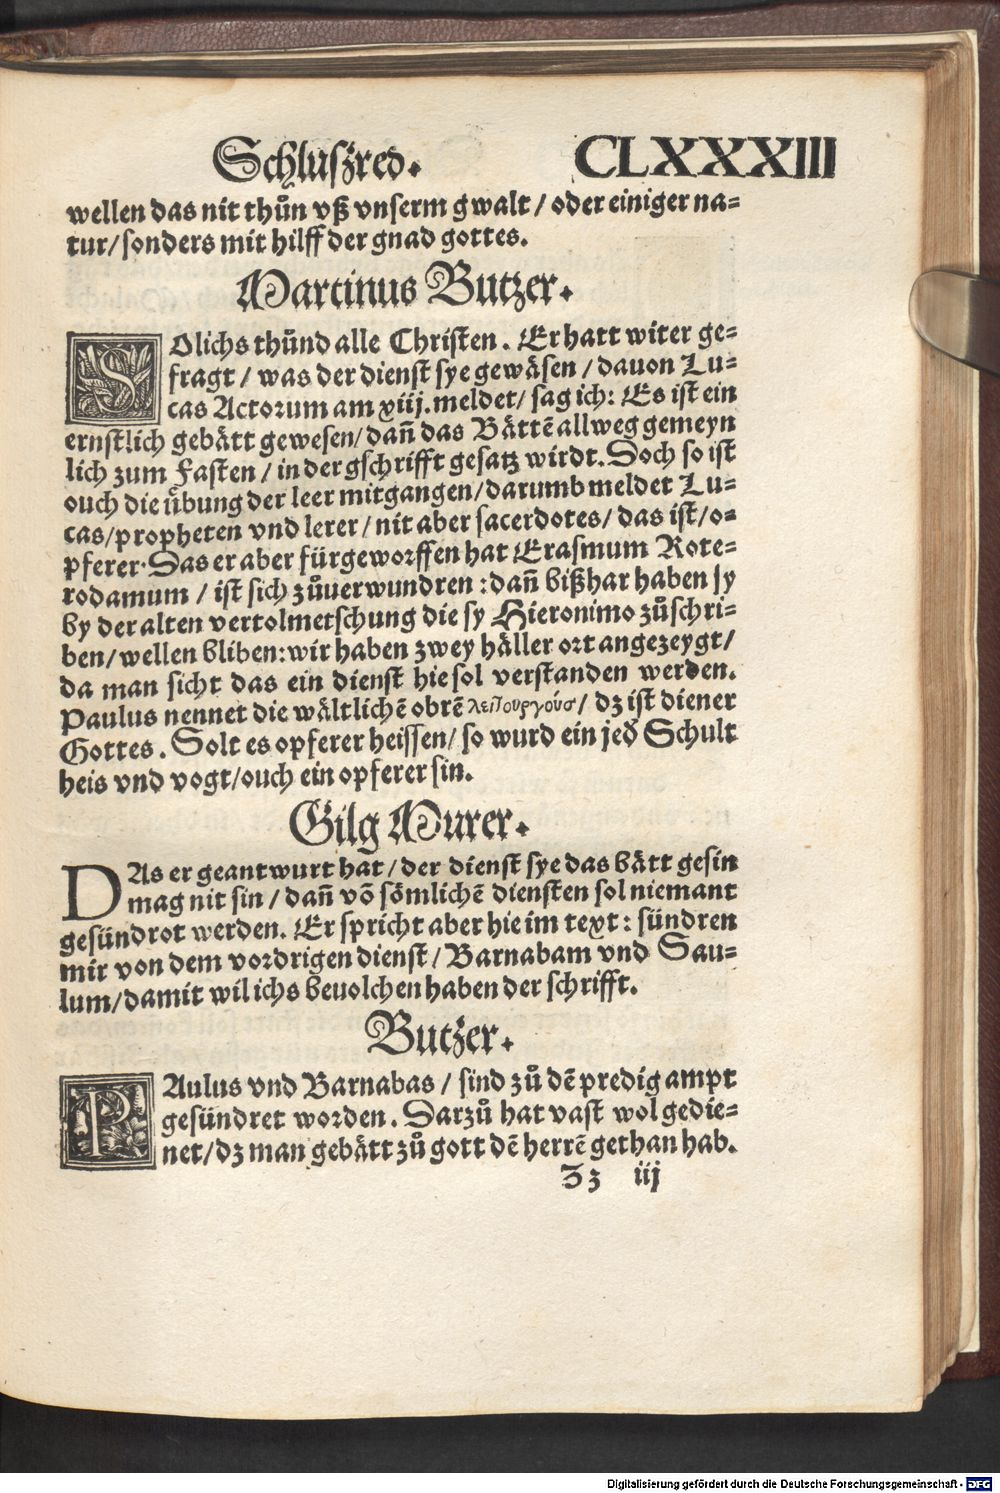 Schluszred. CLXXXIII
wellen das nit thůn vß vnserm gwalt / oder einiger na⸗
tur / sonders mit hilff der gnad gottes.
Martinus Butzer.
SOlichs thůnd alle Christen. Er hatt witer ge⸗
fragt / was der dienst sye gewäsen / dauon Lu⸗
cas Actorum am xiij. meldet / sag ich: Es ist ein
ernstlich gebätt gewesen / dañ das Bättẽ allweg gemeyn
lich zum Fasten / in der gschrifft gesatz wirdt. Doch so ist
ouch die übung der leer mitgangen / darumb meldet Lu⸗
cas / propheten vnd lerer / nit aber sacerdotes / das ist / o⸗
pferer. Das er aber fürgeworffen hat Erasmum Rote⸗
rodamum / ist sich zůuerwundren : dañ bißhar haben sy
by der alten vertolmetschung die sy Hieronimo zůschri⸗
ben / wellen bliben: wir haben zwey häller ort angezeygt /
da man sicht das ein dienst hie sol verstanden werden.
Paulus nennet die wältlichẽ obrẽ λειτουργούσ / dz ist diener
Gottes. Solt es opferer heissen / so wurd ein jed̃ Schult
heis vnd vogt / ouch ein opferer sin.
Gilg Murer.
DAs er geantwurt hat / der dienst sye das bätt gesin
mag nit sin / dañ võ sömlichẽ diensten sol niemant
gesündrot werden. Er spricht aber hie im text : sündren
mir von dem vordrigen dienst / Barnabam vnd Sau⸗
lum / damit wil ichs beuolchen haben der schrifft.
Butzer.
PAulus vnd Barnabas / sind zů dẽ predig ampt
gesündret worden. Darzů hat vast wol gedie⸗
net / dz man gebätt zů gott dẽ herrẽ gethan hab.
Zz iij
Digitalisierung gefördert durch die Deutsche Forschungsgemeinschaft - DFG